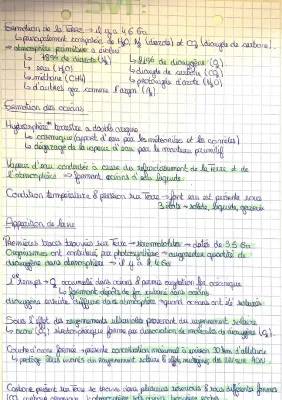 Formation de la Terre → il y a 4,6 Ga
↳ principalement composée de H₂O, N₂ (diazote) et CO₂ (dioxyde de carbone).
→ atmosphère primitive a évolué
↳ diazote (N₂) ↳ dioxygène (O₂)
↳ eau (H₂O) ↳ dioxyde de carbone (CO₂)
↳ méthane (CH₄) ↳ d'azote (N₂O)
↳ d'autres gaz comme l'argon
Formation des océans
Hydrosphère terrestre a double origine
↳ cosmique (apport d'eau par les météorites et les comètes)
↳ dégazage de la vapeur d'eau par le manteau primitif
Vapeur d'eau condensée à cause du refroidissement de la Terre et de
l'atmosphère → forment océans d'eau liquide
Condition température & pression sur Terre → font eau est présente sous
3 états → solide, liquide, gazeux
Apparition de la vie
Premières traces trouvées sur Terre → stromatolites → datés de 3,5 Ga
Organismes ont contribué par photosynthèse → augmenter quantité de
dioxygène dans atmosphère → il y a Ga
temps → O₂ accumulé dans océans & permis oxydation fer océanique
dioxygène ensuite diffusé dans atmosphère quand océans ont été saturés
Sous l'effet des rayonnements ultraviolets provenant du rayonnement solaire
→ ozone (O₃) stratosphérique formé par dissociation de molécules de dioxygène (O₂)
Couche d'ozone formée → présente concentration maximale à environ 30 km d'altitude
Carbone présent sur Terre se trouve dans plusieurs réservoirs & sous différentes formes